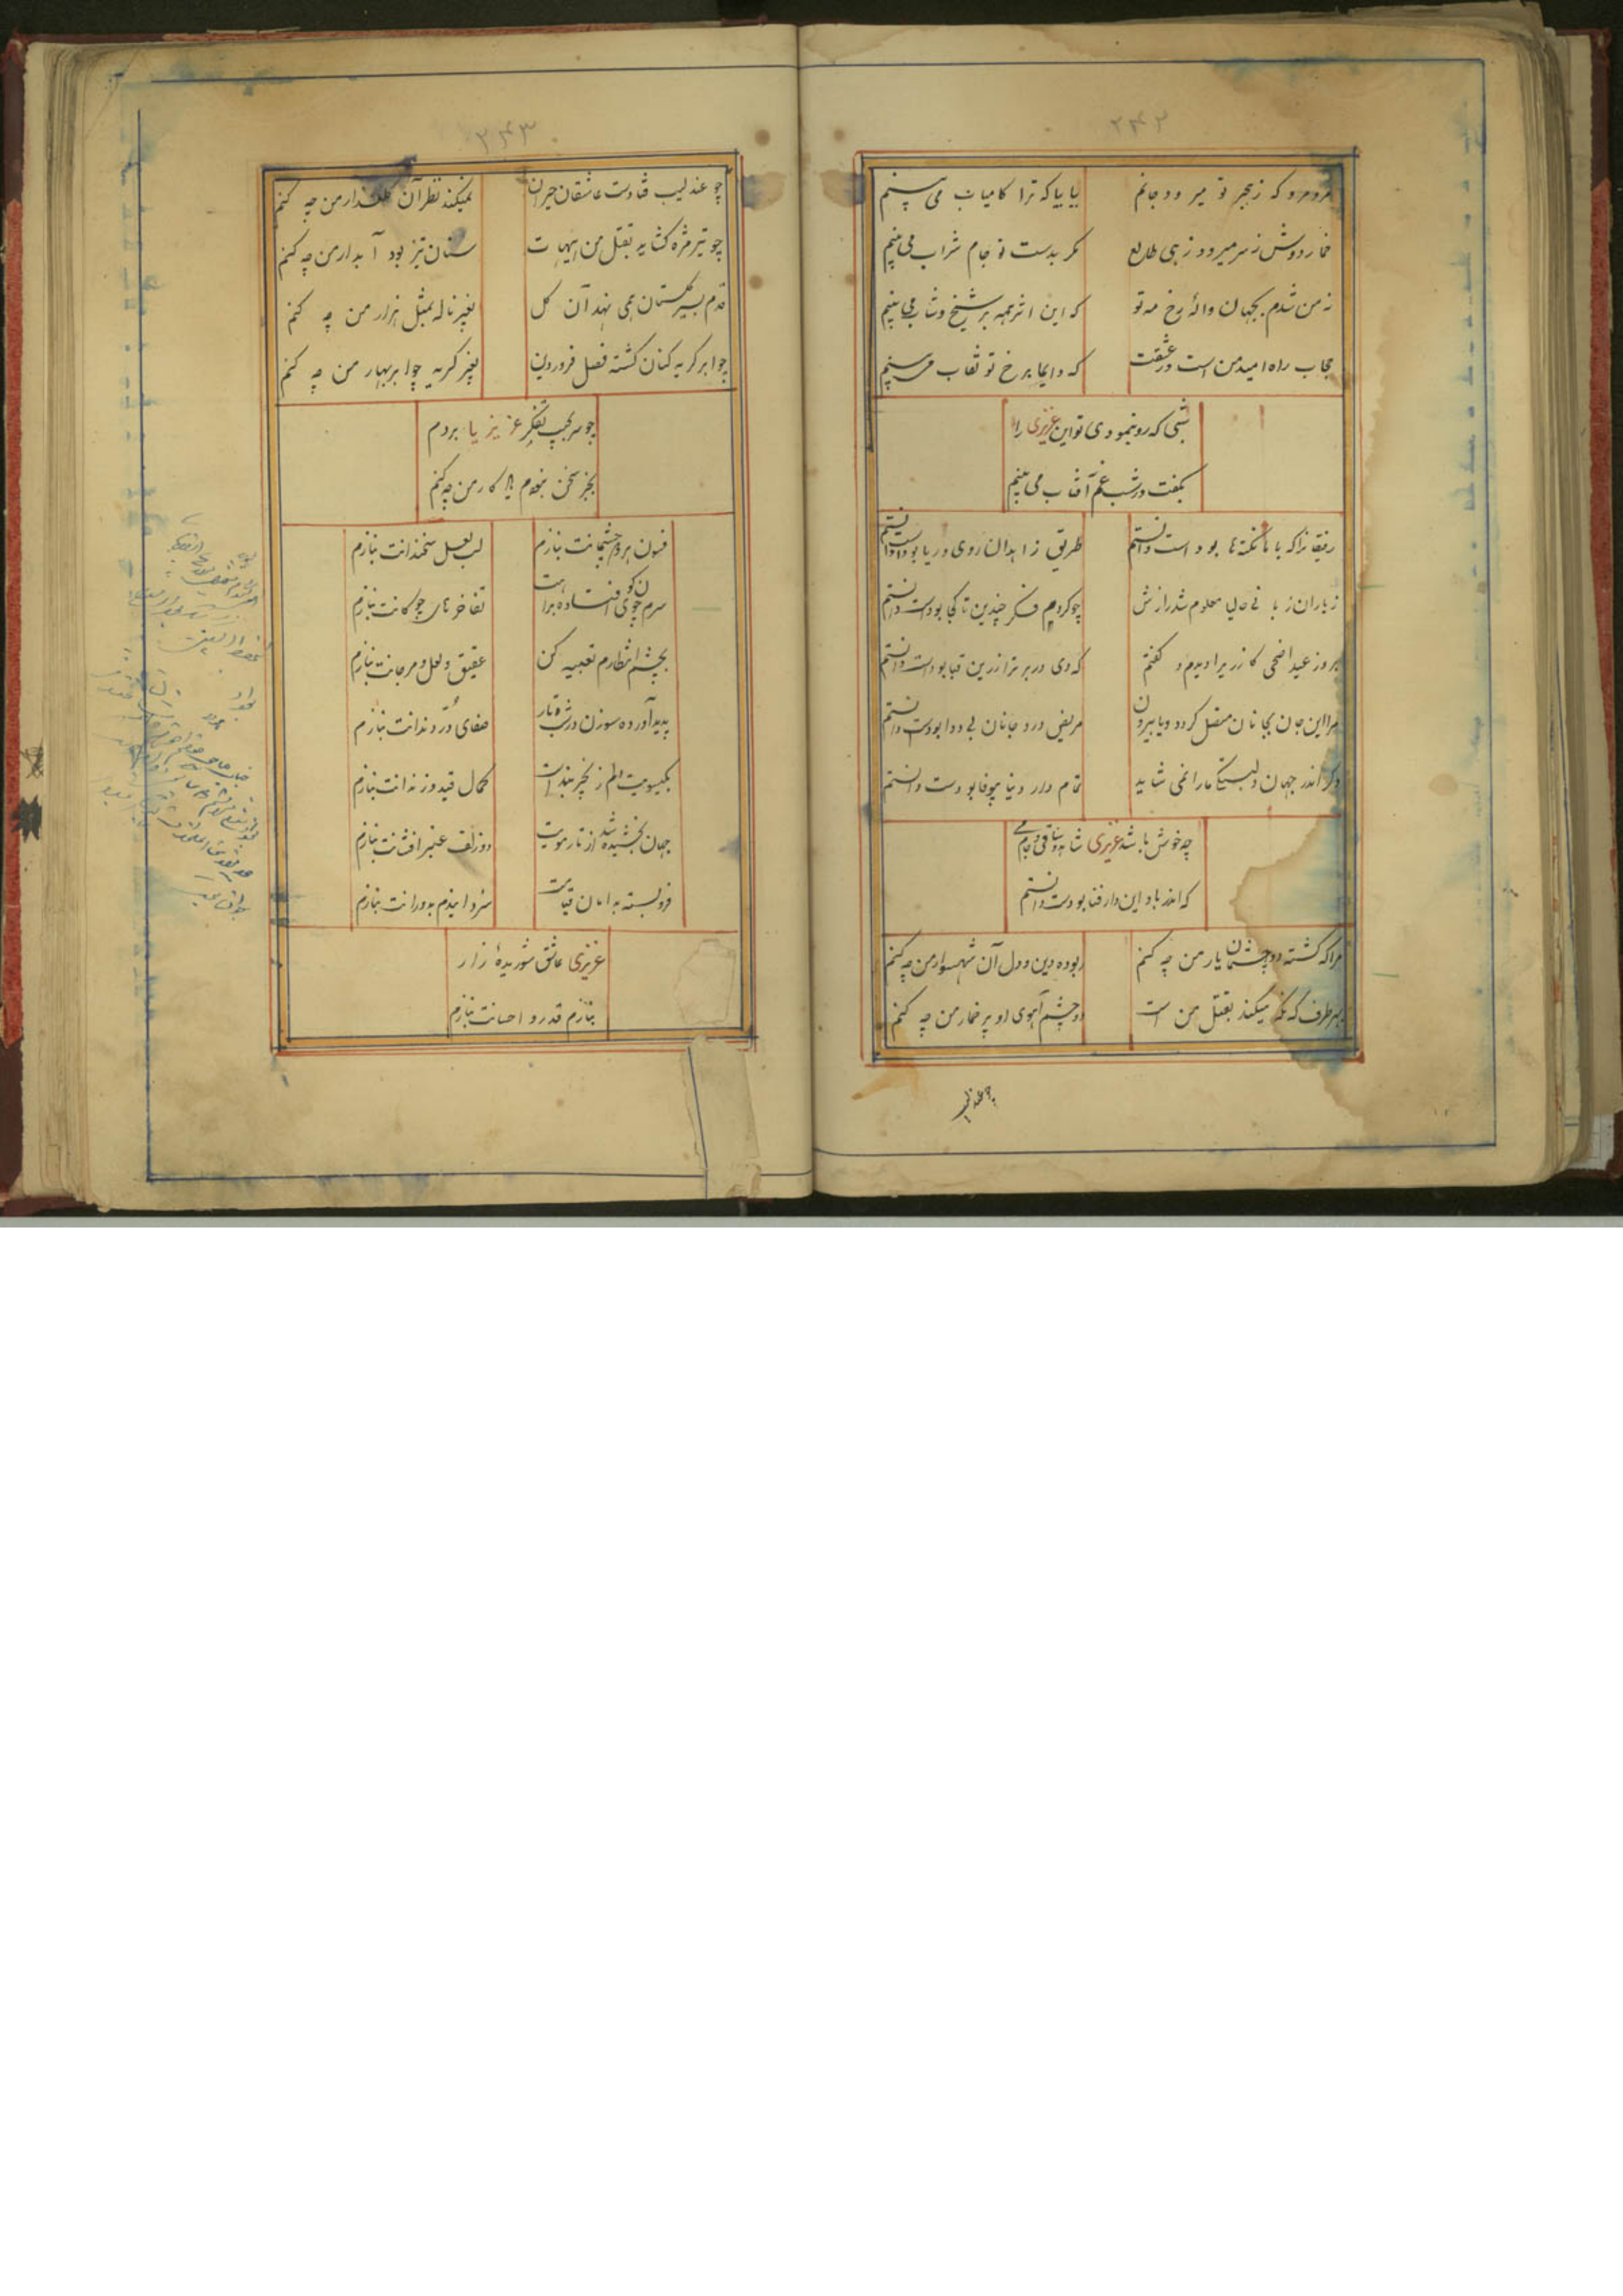 ۲۴۲
مرو مرو که ز هجر تو میرود جانم بیا بیا که ترا کامیاب می بینم
خمار دوش ز سر میرود زهی طالع مگر بدست تو جام شراب می بینم
نه من شدم بجهان واله رخ مه تو که این اثر همه بر شیخ و شاب می بینم
حجاب راه امید من است در عشقت که دایما بر رخ تو نقاب می بینم
شبی که رو بنمودی تو این عزیزی را
بگفت در شب غم آفتاب می بینم
رفیقانرا که با ما نکته ها بود است دانستم طریق زاهدان روی و ریا بود است دانستم
ز یاران زبانی حالیا معلوم شد رازش چو کردم فکر چندین تا کجا بود است دانستم
بروز عید اضحی کان پریرا دیدم و گفتم که دی در بر ترا زرین قبا بود است دانستم
مرا این جان بجانان متصل گردد و یا بیرون مریض درد جانان بی دوا بود است دانستم
دگر اندر جهان دلبستگی ما را نمی شاید تمام دار دنیا بیوفا بود است دانستم
چه خوش باشد عزیزی شاهد و ساقی و جام می
که اندر باد این دار فنا بود است دانستم
مرا که کشته دو چشمان یار من چه کنم ربوده دین و دل آن شهسوار من چه کنم
بهر طرف که نگه میکند بقتل من است دو چشم آهوی او پر خمار من چه کنم
چو عندلیب
۲۴۳
چو عندلیب فتادست عاشقان حیران نمیکند نظر آن گلعذار من چه کنم
چو تیر مژه گشاید بقتل من هیهات سنان تیز بود آبدار من چه کنم
قدم بسیر گلستان همی نهد آن گل بغیر ناله بمثل هزار من چه کنم
چو ابر گریه کنان گشته فصل فروردین بغیر گریه چو ابر بهار من چه کنم
چو سر بجیب تفکر عزیزیا بردم
بجز سخن نبود هیچ کار من چه کنم
فسون هر دو چشمانت بنازم لب لعل سخندانت بنازم
سرم چون گوی افتاده براهت تفاخرهای چوگانت بنازم
بچشم انتظارم تعبیه کن عقیق و لعل و مرجانت بنازم
پدید آورده سوزن در شب تار صفای در دندانت بنازم
بگیسویت دلم زنجیر بند است کمال قید و زندانت بنازم
جهان بخشیده شد از تار مویت دو زلف عنبر افشانت بنازم
فرو بسته بدامان قیامت سر و دورانت بنازم
عزیزی عاشق شوریدهٔ زار
بنازم قدر و احسانت بنازم